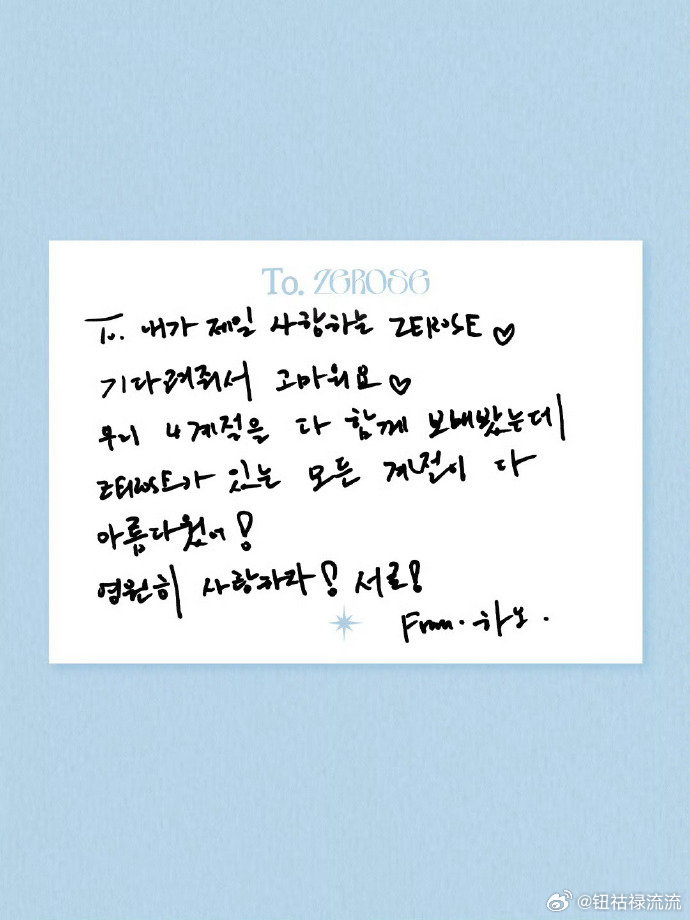 To. ZEROSE
To. 내가 제일 사랑하는 ZEROSE ♡
기다려줘서 고마워요 ♡
우리 4계절을 다 함께 보내봤는데
ZEROSE가 있는 모든 계절이 다
아름다웠어!
영원히 사랑하자! 서로!
From. 하오.
@钮祜禄流流